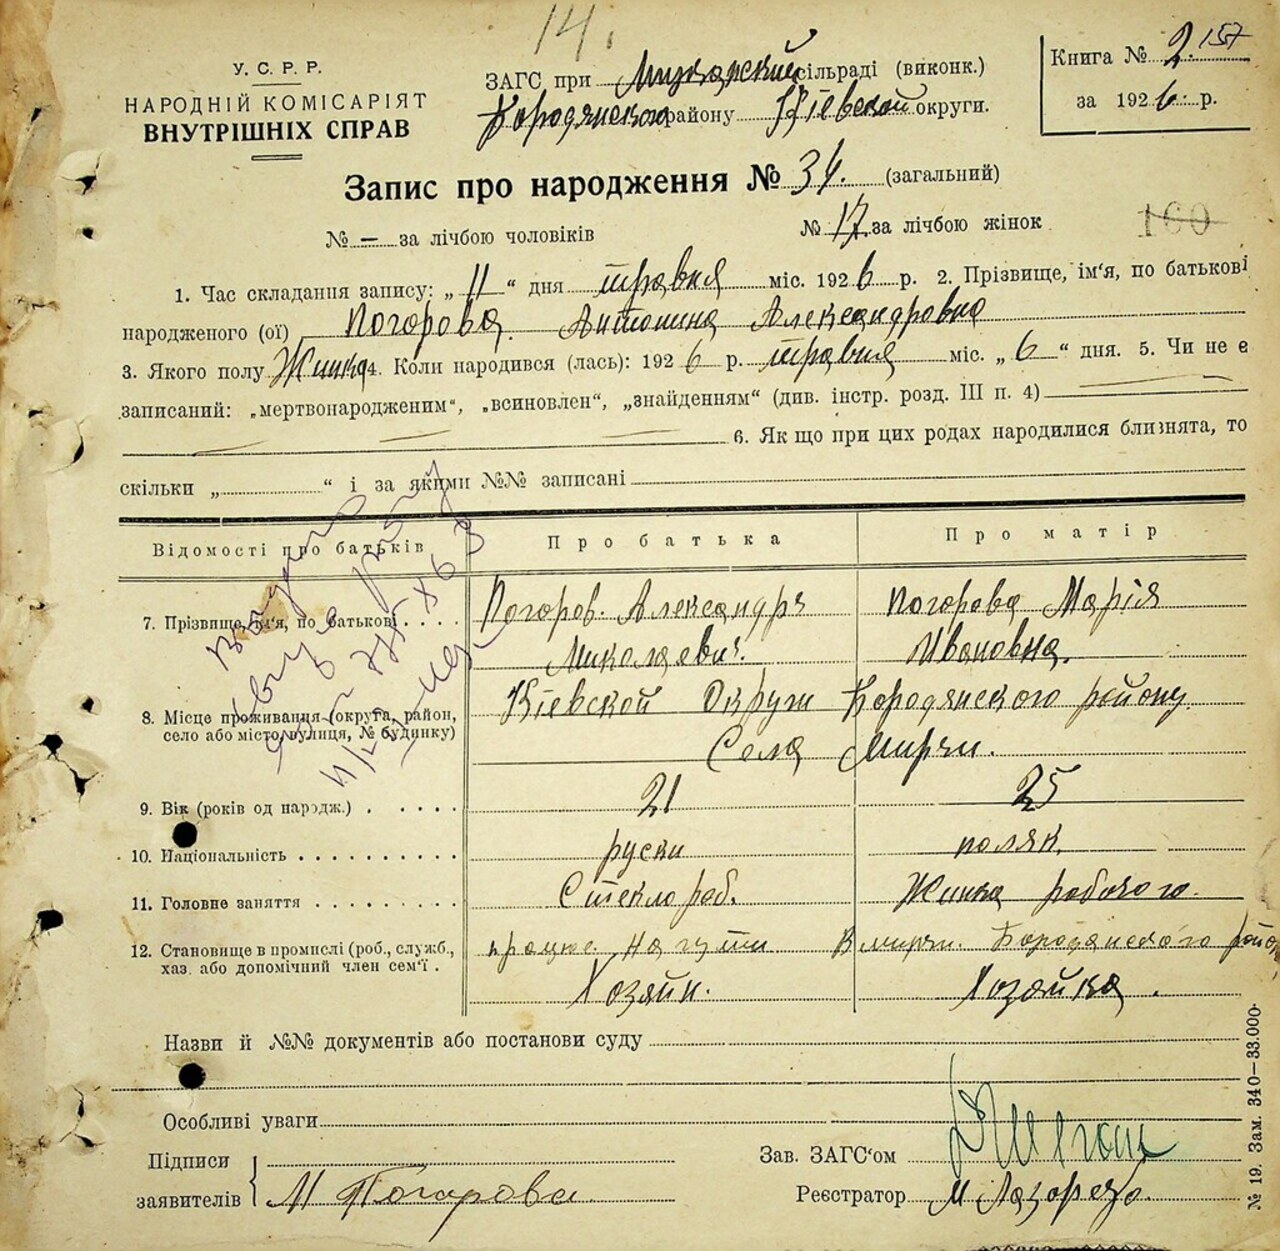 14.
У.С.Р.Р.
НАРОДНІЙ КОМІСАРІЯТ
ВНУТРІШНІХ СПРАВ
ЗАГС при сільраді (виконк.)
Бородянского району Кіевской округи.
Книга № 2 157
за 1926 р.
Запис про народження № 34. (загальний)
№ — за лічбою чоловіків № 17. за лічбою жінок
160
1. Час складання запису: „11“ дня травня міс. 1926 р. 2. Прізвище, ім'я, по батькові
народженого (ої) Погорова Антонина Александровна
3. Якого полу Жинка 4. Коли народився (лась): 1926 р. травня міс. „6“ дня. 5. Чи не є
записаний: „мертвонародженим“, „всиновлен“, „знайденням“ (див. інстр. розд. III п. 4)
6. Як що при цих родах народилися близнята, то
скільки „ “ і за якими №№ записані
Відомості про батьків Про батька Про матір
7. Прізвище, ім'я, по батькові Погоров Александр Погорова Марія
Миколаевич. Ивановна.
8. Місце проживання (округа, район, Кіевской Округи Бородянского району
село або місто, вулиця, № будинку) Села Мирчи.
9. Вік (років од народж.) 21 25
10. Національність руски поляк.
11. Головне заняття Стеклороб. Жинка робочого.
12. Становище в промислі (роб., служб., працюе на гути В мирчи. Бородянского район
хаз. або допомічний член сем'ї. Хозяйн. Хозайка.
Назви й №№ документів або постанови суду
Особливі уваги
Підписи
заявителів М Погорова
Зав. ЗАГС'ом
Реєстратор М Лазоренко.
№ 19. Зам. 340—33.000.